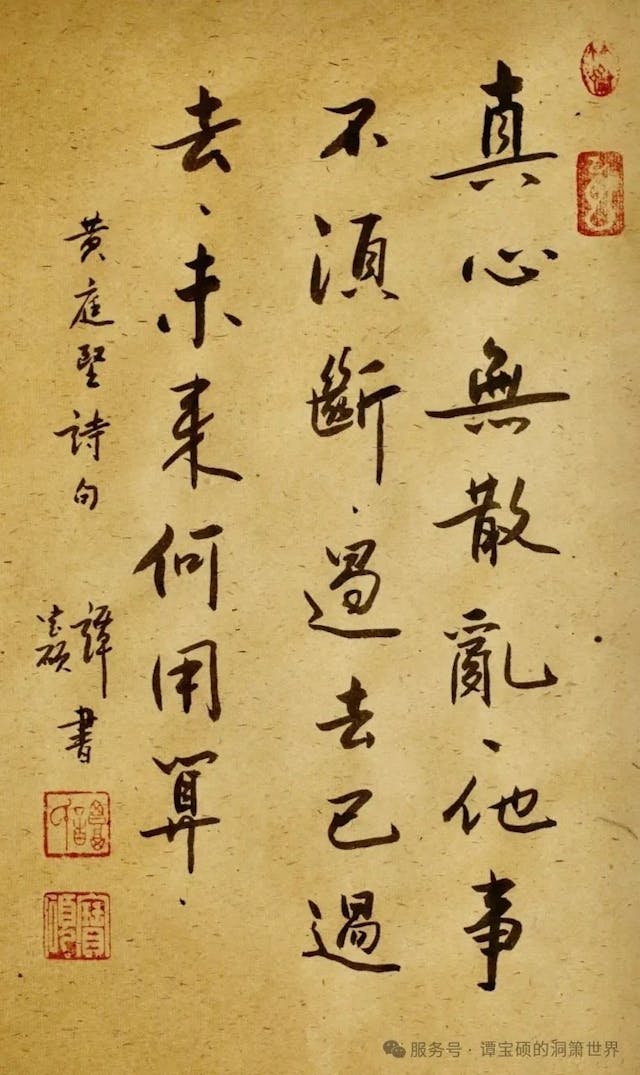 真心無散亂、他事
不須斷.過去已過
去、未來何用算.
黄庭堅詩句
譚寶碩書
服务号·谭宝硕的洞箫世界